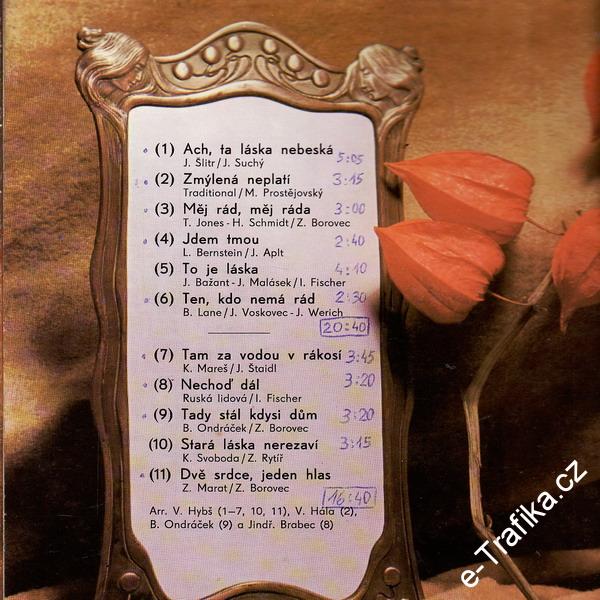 (1) Ach, ta láska nebeská 5:05
J. Šlitr/J. Suchý
(2) Zmýlená neplatí 3:15
Traditional/M. Prostějovský
(3) Měj rád, měj ráda 3:00
T. Jones-H. Schmidt/Z. Borovec
(4) Jdem tmou 2:40
L. Bernstein/J. Aplt
(5) To je láska 4:10
J. Bažant-J. Malásek/I. Fischer
(6) Ten, kdo nemá rád 2:30
B. Lane/J. Voskovec-J. Werich
20:40
(7) Tam za vodou v rákosí 3:45
K. Mareš/J. Štaidl
(8) Nechoď dál 3:20
Ruská lidová/I. Fischer
(9) Tady stál kdysi dům 3:20
B. Ondráček/Z. Borovec
(10) Stará láska nerezaví 3:15
K. Svoboda/Z. Rytíř
(11) Dvě srdce, jeden hlas
Z. Marat/Z. Borovec
16:40
Arr. V. Hybš (1-7, 10, 11), V. Hála (2),
B. Ondráček (9) a Jindř. Brabec (8)
e-Trafika.cz